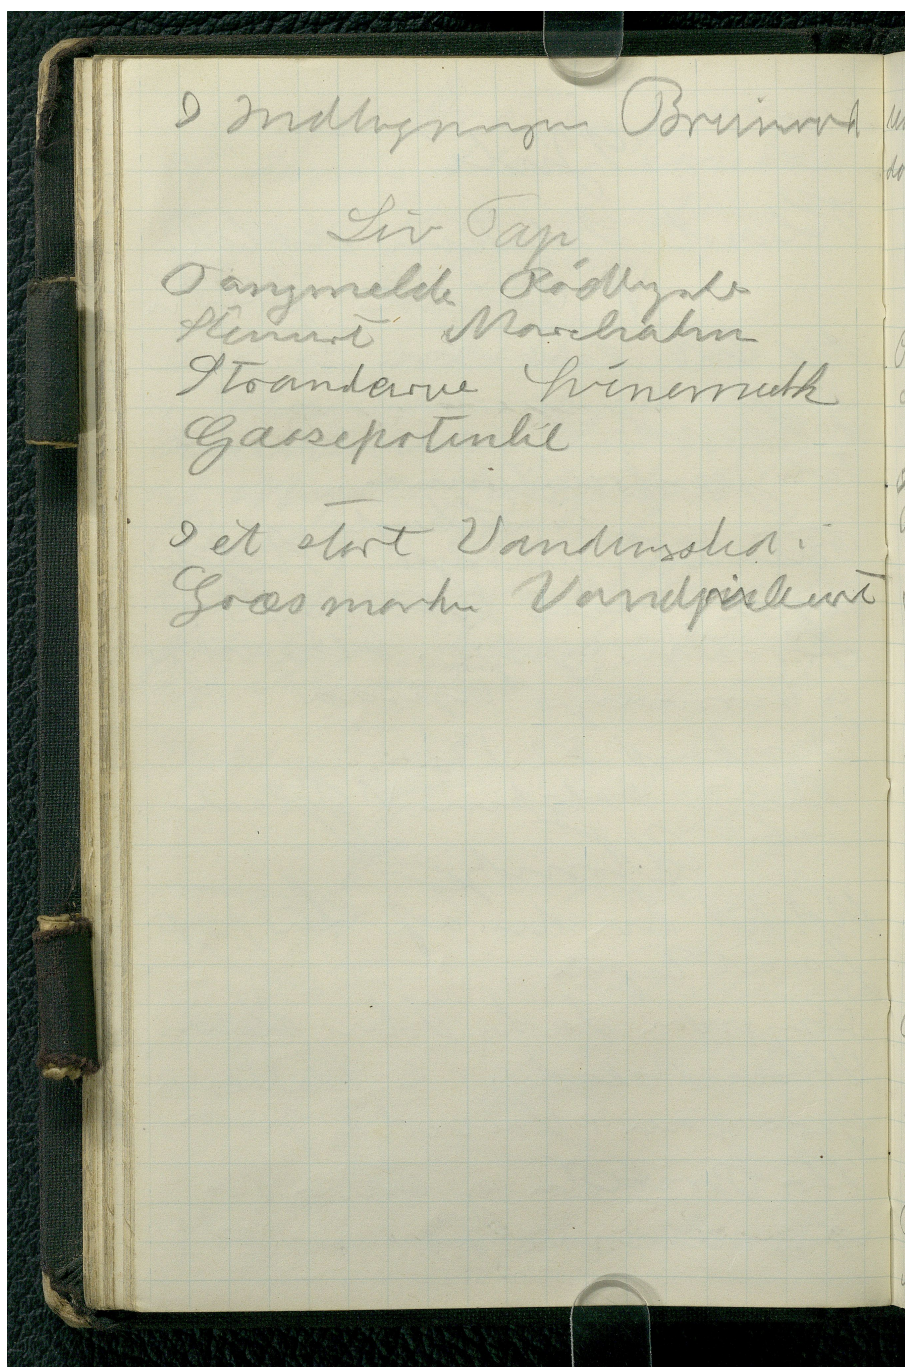 I Indbygningen Brunrod
Liv Tap
Tangmelde Rødbynke
Stenurt Marehalm
Strandarve Svinemælk
Gaasepotentil
I et stort Vandingssted i
Græsmarken Vandpileurt